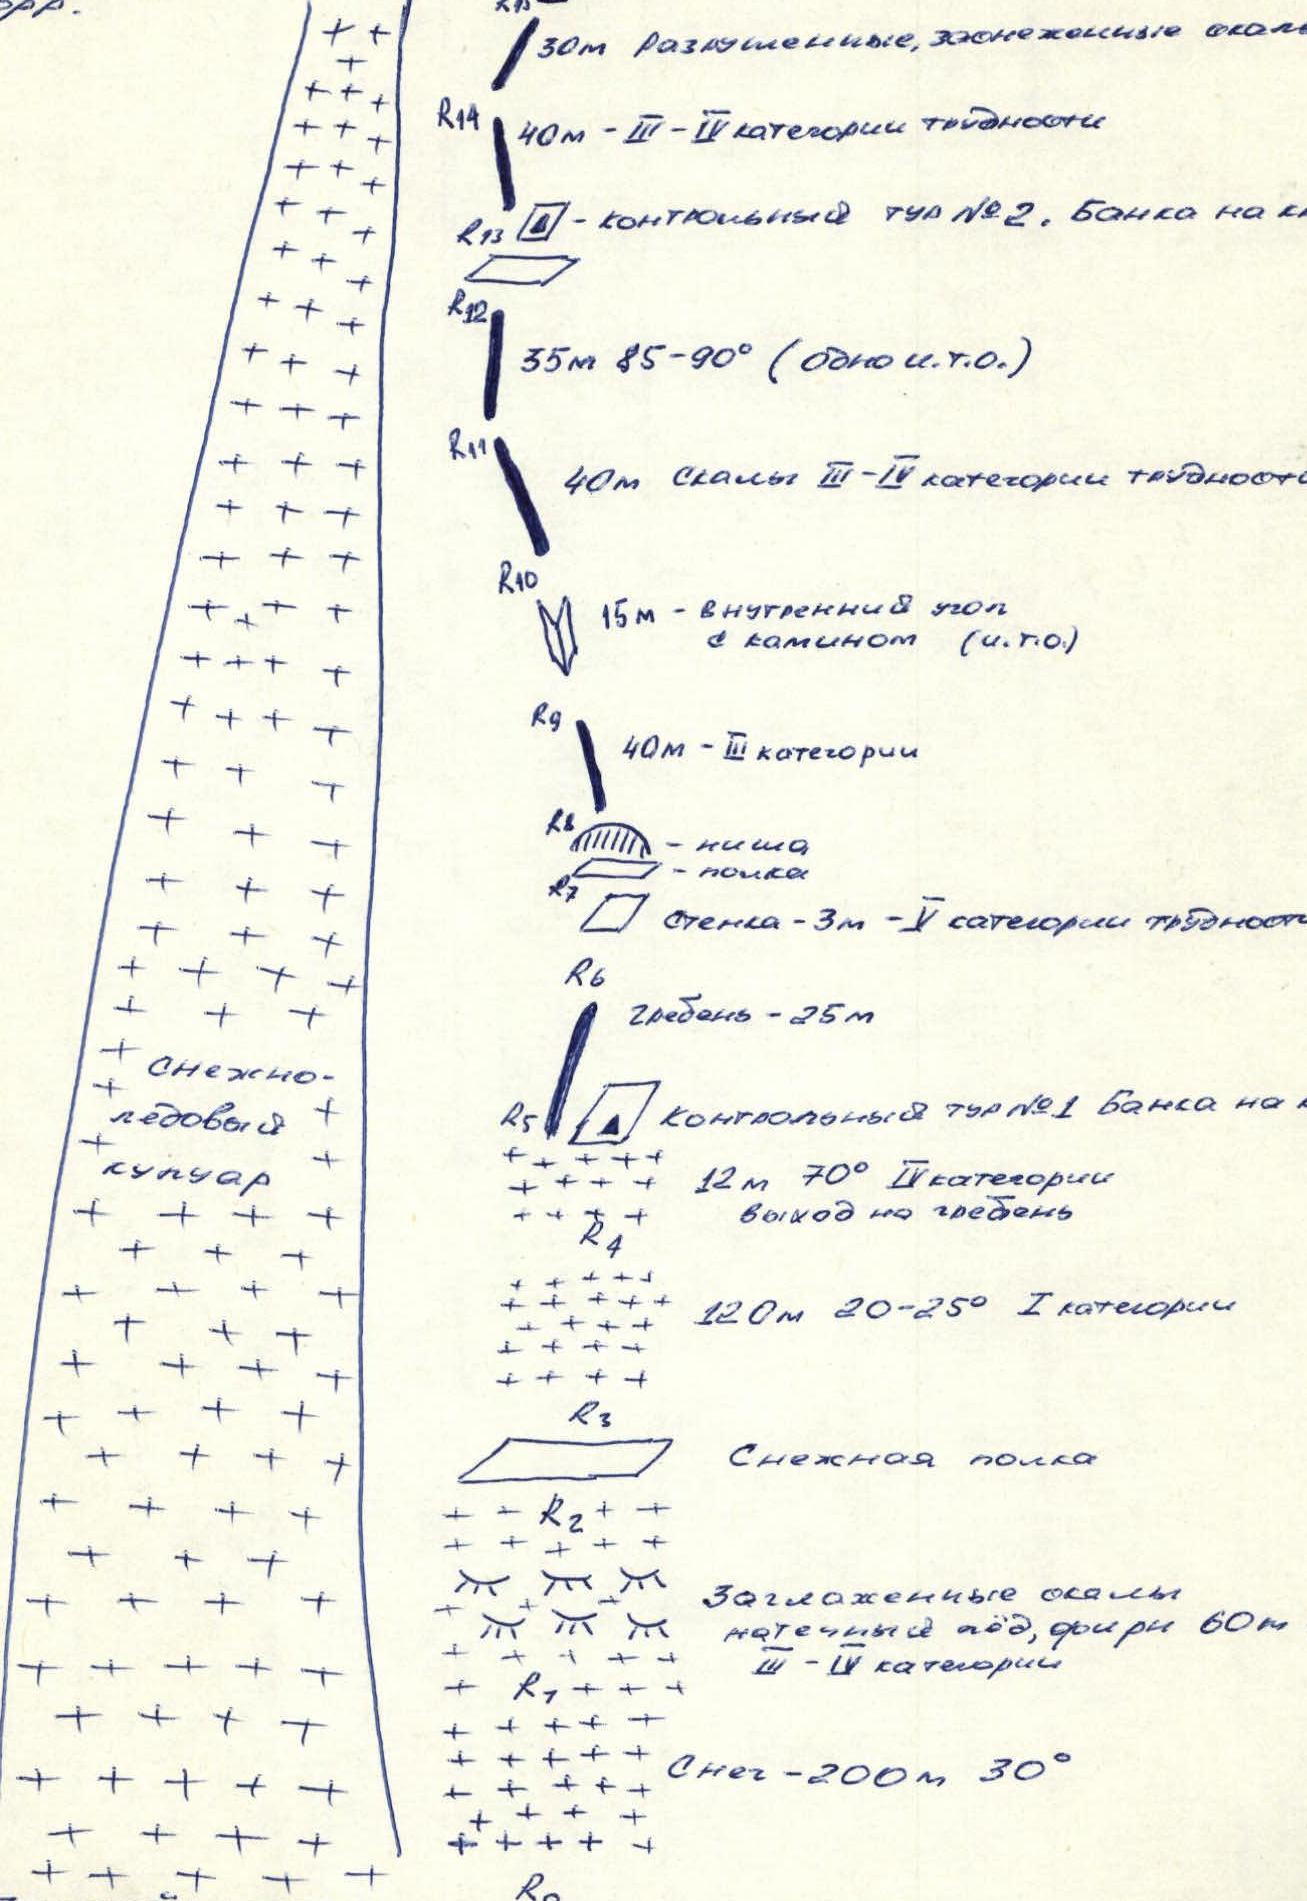 R15
30м Разрушенные, заснеженные скалы
R14
40м - III - IV категории трудности
R13 - контрольный тур №2. Банка на
R12
35м 85-90° (одно и.т.о.)
R11
40м Скалы III - IV категории трудности
R10
15м - внутренний угол
с камином (и.т.о.)
R9
40м - III категории
R8 - ниша
- полка
R7
стенка - 3м - V категории трудности
R6
гребень - 25м
снежно-
ледовый
кулуар
R5 Контрольный тур №1 Банка на
12м 70° IV категории
выход на гребень
R4
120м 20-25° I категории
R3
Снежная полка
R2
Заглаженные скалы
натечный лёд, фирн 60м
III - IV категории
R1
Снег - 200м 30°
R0